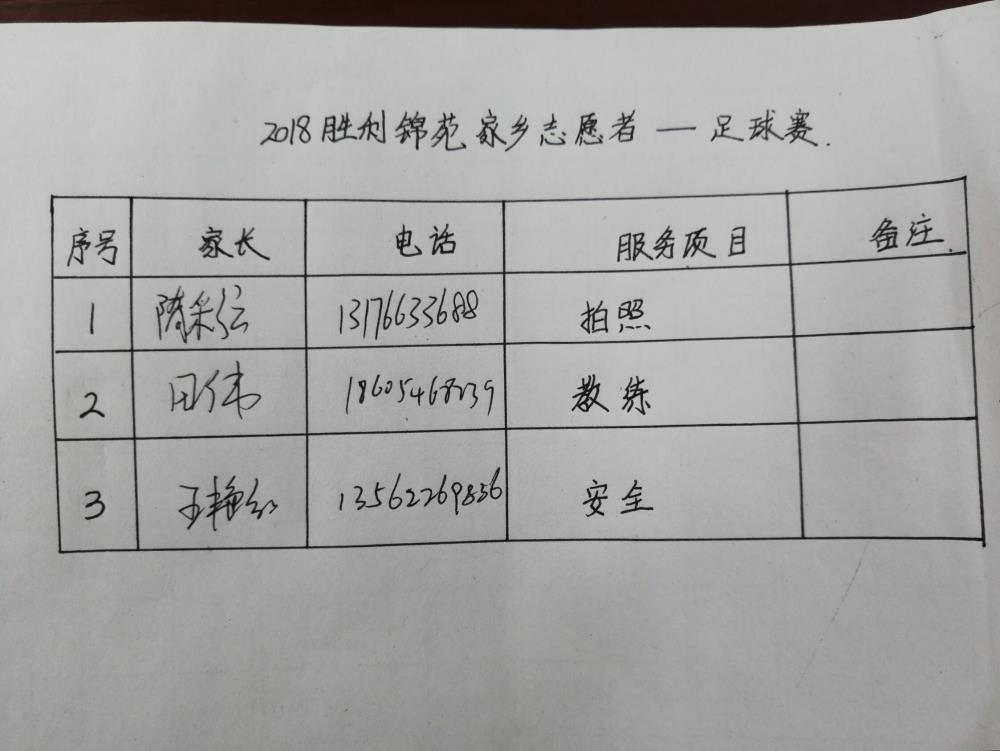 2018胜利锦苑家乡志愿者 — 足球赛.
序号 家长 电话 服务项目 备注.
1 隋彩红 13176633688 拍照
2 田伟 18605468239 教练
3 王艳红 13562269836 安全